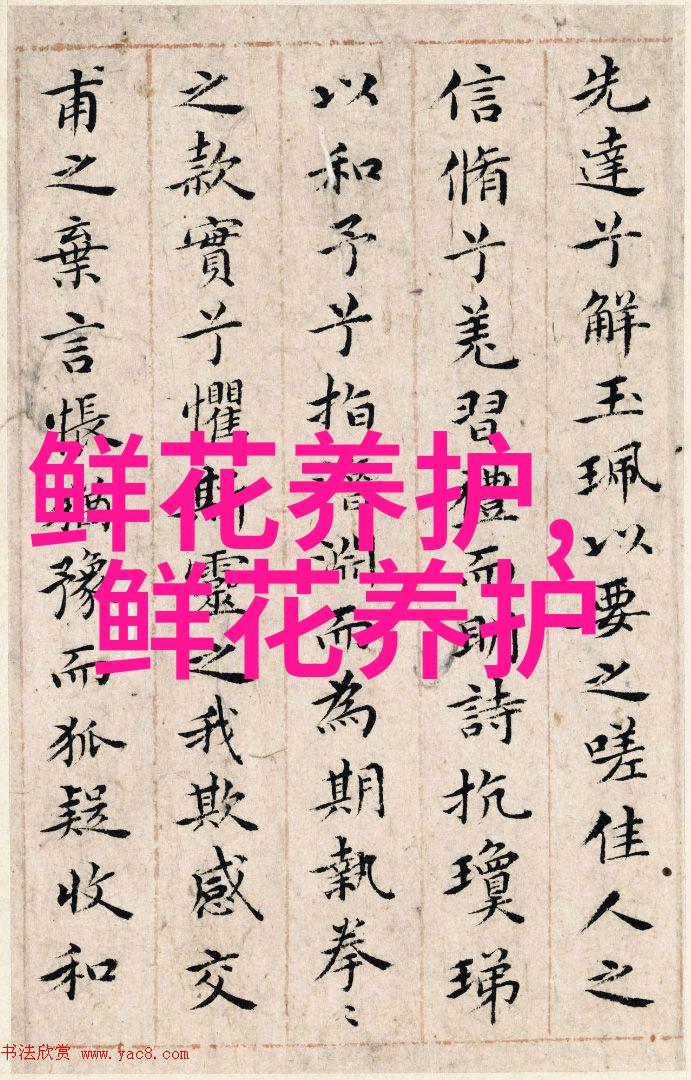 先達兮解玉珮以要之嗟佳人之
信脩兮羌習禮而明詩抗瓊珶
以和予兮指潛淵而為期執拳〻
之款實兮懼斯靈之我欺感交
甫之棄言悵猶豫而狐疑收和
鲜花养护,
鲜花养护
书法欣赏 www.yac8.com